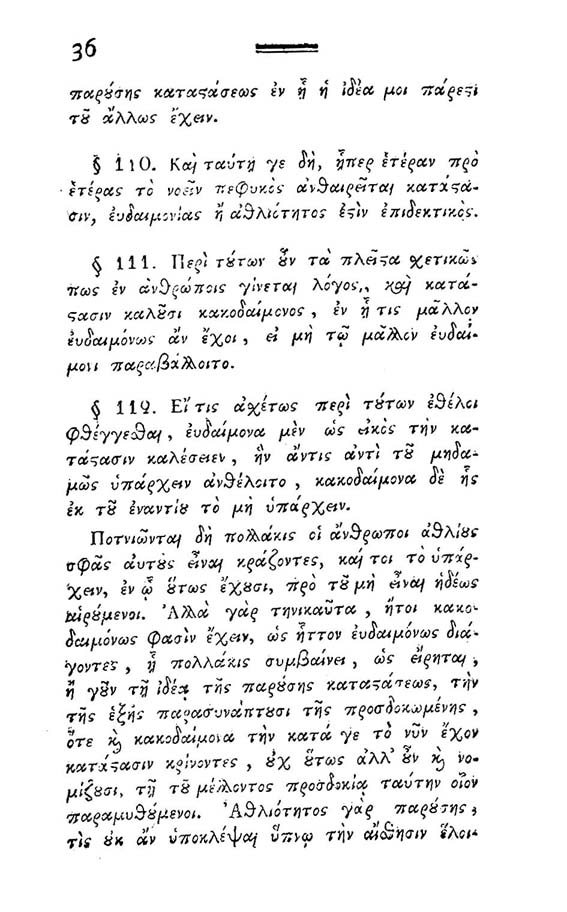 36
παρούσης καταστάσεως ἐν ᾗ ἡ ἰδέα μοι πάρεστι
τοῦ ἄλλως ἔχειν.
§ 110. Καὶ ταύτῃ γε δὴ, ᾗπερ ἑτέραν πρὸ
ἑτέρας τὸ νοεῖν πεφυκὸς ἀνθαιρεῖται κατάστα-
σιν, ἐυδαιμονίας ἢ ἀθλιότητος ἐστὶν ἐπιδεκτικὸς.
§ 111. Περὶ τούτων οὖν τὰ πλεῖστα σχετικῶς
πως ἐν ἀνθρώποις γίνεται λόγος,, καὶ κατά-
στασιν καλοῦσι κακοδαίμονος, ἐν ᾗ τις μᾶλλον
ἐυδαιμόνως ἂν ἔχοι, εἰ μὴ τῷ μᾶλλον ἐυδαί-
μονι παραβάλλοιτο.
§ 112. Εἴ τις ἀσχέτως περὶ τούτων ἐθέλοι
φθέγγεσθαι, ἐυδαίμονα μὲν ὡς εἰκὸς τὴν κα-
τάστασιν καλέσειεν, ἣν ἄντις ἀντὶ τοῦ μηδα-
μῶς ὑπάρχειν ἀνθέλοιτο, κακοδαίμονα δὲ ἧς
ἐκ τοῦ ἐναντίου τὸ μὴ ὑπάρχειν.
Ποτνιῶνται δὴ πολλάκις οἱ ἄνθρωποι ἀθλίους
σφᾶς αὐτοὺς εἶναι κράζοντες, καί τοι τὸ ὑπάρ-
χειν, ἐν ᾧ οὕτως ἔχουσι, πρὸ τοῦ μὴ εἶναι ἡδέως
αἱρούμενοι. Ἀλλὰ γὰρ τηνικαῦτα, ἤτοι κακο-
δαιμόνως φασὶν ἔχειν, ὡς ἧττον ἐυδαιμόνως διά-
γοντες, ᾗ πολλάκις συμβαίνει, ὡς εἴρηται,
ἢ γοῦν τῇ ἰδέᾳ τῆς παρούσης καταστάσεως, τὴν
τῆς ἑξῆς παρασυνάπτουσι τῆς προσδοκωμένης,
ὅτε καὶ κακοδαίμονα τὴν κατά γε τὸ νῦν ἔχον
κατάστασιν κρίνοντες, οὐχ οὕτως ἀλλ' οὖν καὶ νο-
μίζουσι, τῇ τοῦ μέλλοντος προσδοκίᾳ ταύτην οἷον
παραμυθούμενοι. Ἀθλιότητος γὰρ παρούσης,
τὶς οὐκ ἂν ὑποκλέψαι ὕπνῳ τὴν αἴσθησιν ἕλοι-